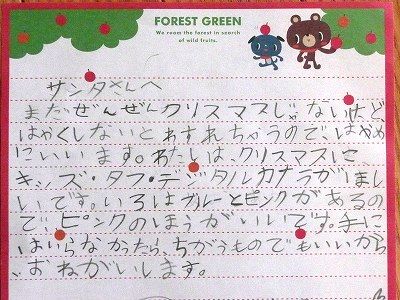 FOREST GREEN
We roam the forest in search
of wild fruits.
サンタさんへ
まだぜんぜんクリスマスじゃないけど、
はやくしないとわすれちゃうのではやめ
にいいます。わたしは、クリスマスに
キッズ・タフ・デジタルカメラがほし
いです。いろはブルーとピンクがあるの
で、ピンクのほうがいいです。手に
はいらなかったら、ちがうものでもいいから
、おねがいします。